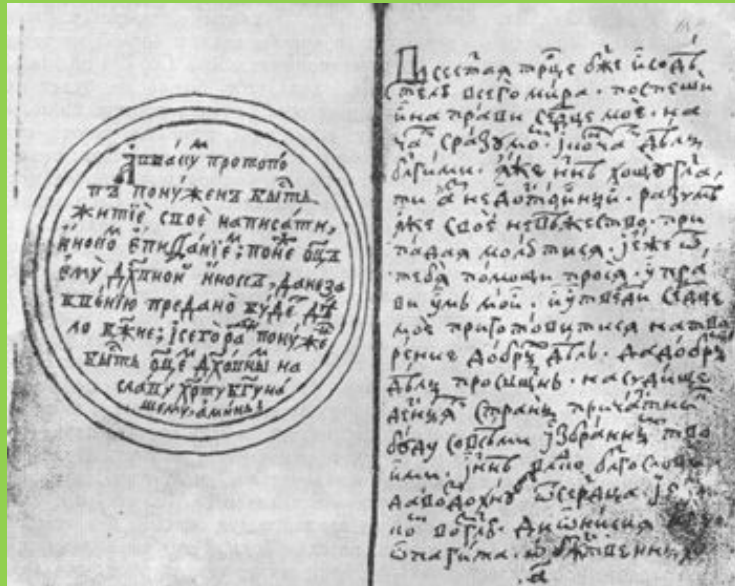 Аввакумъ протопо
пъ понуженъ бысть
житиѐ своѐ написати,
инокомъ епиѳаниемъ; понеж оц҃ъ
ему дх҃овной инокъ, да не за
бвению предано̀ будет дѣ
ло бж҃ие; и сего ради понужен
бысть оц҃емъ дх҃овнымъ на
славу хр҃ту бг҃у на
шему, аминь
Всест҃ая трⷪ҇це бж҃е и содѣ
телю всего мира. поспеши
и направи ср҃дце моѐ. на
чат с разумом. и кончат дѣлы
бл҃гими. яже нн҃ѣ хощу гл҃а
ти аз недостойный. разумѣя
же своѐ невѣжество. при
падая молю ти ся. и еже ѿ
тебя помощи прося. упра
ви умъ мой. и утверди ср҃дце
моѐ приготовитися на тво
рение добрых дѣлъ. да добрыми
дѣлы просвещенъ. на судище
десныя ти страны причастник
буду со всѣми избранными тво
ими. и нн҃ѣ влⷣко бл҃гослови
да воздохнув ѿ сердца и язы
ком возгл҃ю. дионисия арео
пагита. о бж҃твенных
а҃